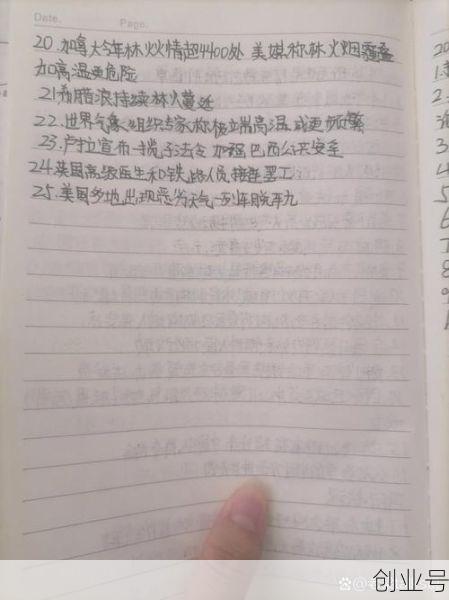 Date. Page.
20.加拿大今年林火火情超4400处 美媒称林火烟霾叠
加高温更危险
21.希腊浪持续林火蔓延
22.世界气象组织专家称极端高温或更频繁
23.卢拉宣布一揽子法令 加强巴西公共安全
24.英国高级医生和铁路人员接连罢工
25.美国多地出现恶劣天气
20
1.
2.
3
4
5
6
7
8
9
创业号